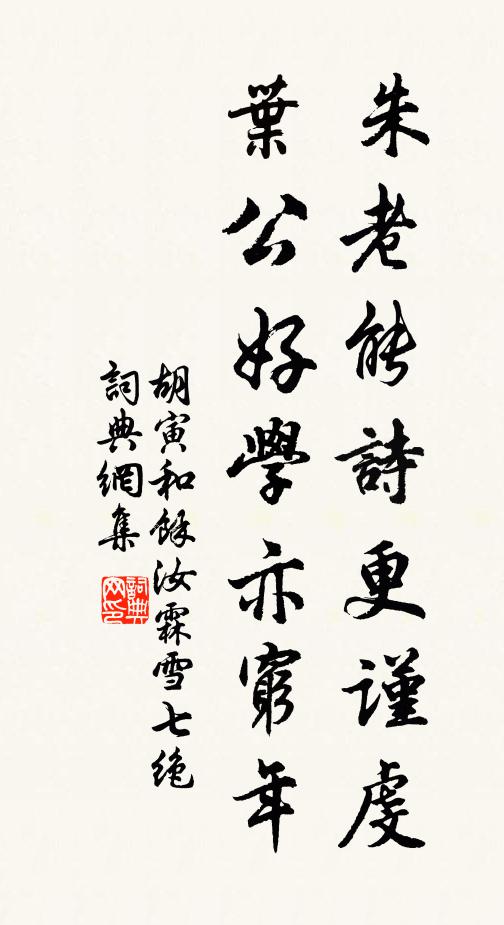 朱老能詩更謹虔
葉公好學亦窮年
胡寅和餘汝霖雪七絶
詞典網集
詞典網印